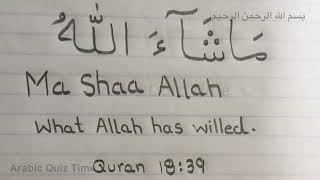 بسم الله الرحمن الرحيم
مَاشَآءَ اللّٰهُ
Ma Shaa Allah
What Allah has willed.
Arabic Quiz Time
Quran 18:39